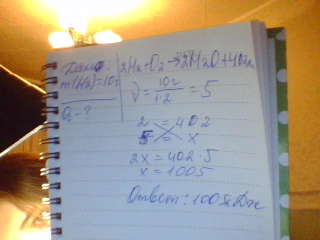 Дано:
m(H2)=10г
Q-?
2H2+O2→2H2O+402
ν=10г/1·2=5
2=402
5=x
2x=402·5
x=1005
Ответ: 1005кДж